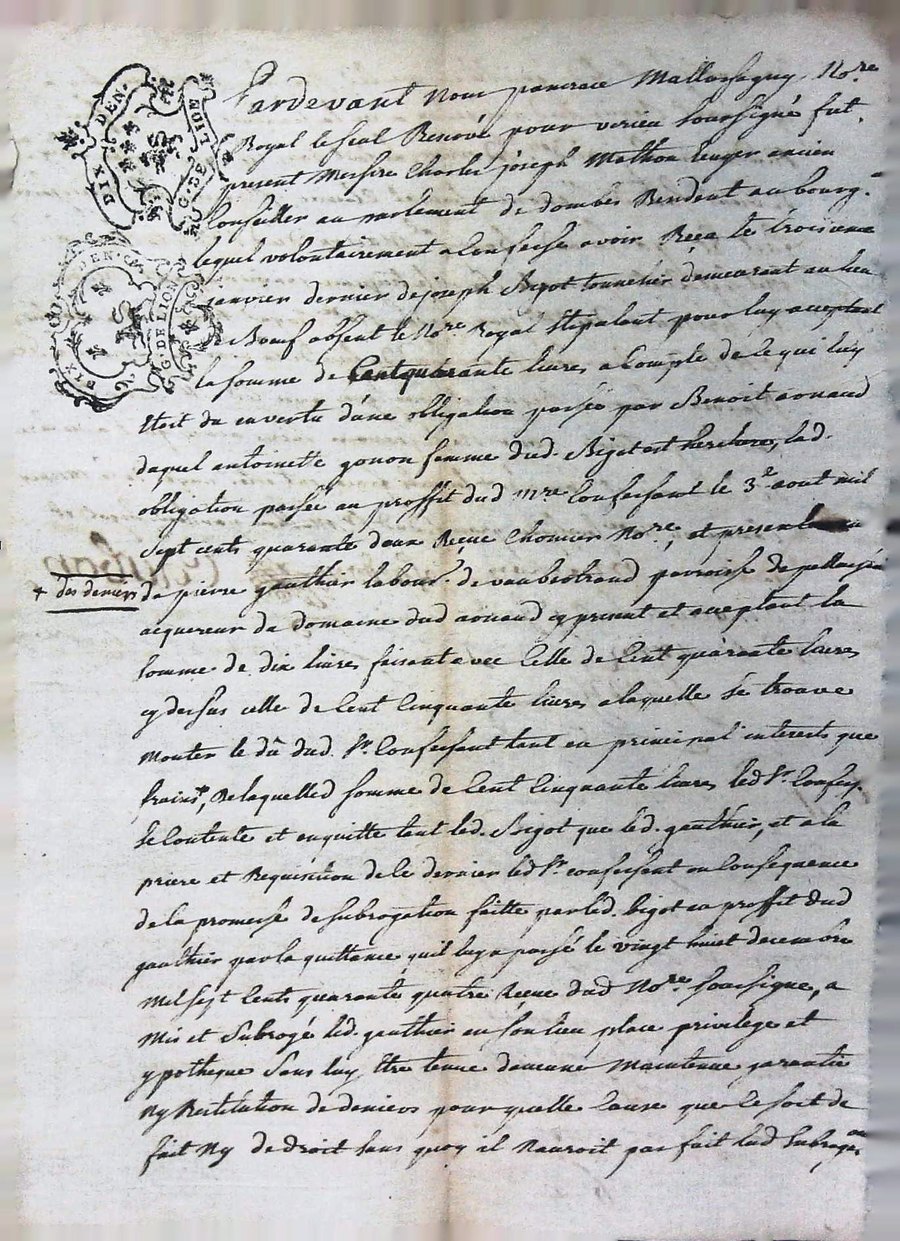 DIX DEN.
G. DE LION
DIX DEN. CE
G. DE LION
Pardevant Nous pancrace Mallassagny, No.re
Royal le seul Renové pour virieu soussigné fut
present Messire Charles joseph Mathon Ecuyer ancien
Conseiller au parlement de dombes Resident au bourg
lequel volontairement a Confessé avoir Receu le troisieme
janvier dernier de joseph Bigot tonnelier demeurant au lieu
Boeuf absent le No.re Royal stipulant pour luy acceptant
la somme de Cent quarante livres a Compte de ce qui luy
Etoit du en vertu d'une obligation passée par Benoit arnaud
duquel antoinette gonon femme dud. Bigot est heritiere, lad.
obligation passée au proffit dud. m.re Confessant le 3.e aout mil
sept cents quarante deux Reçue Chomier No.re, et presentement
+ des deniers
de pierre gauthier labour.r de vaubertrand parroisse de pellussin
acquereur du domaine dud. arnaud cy present et acceptant la
somme de dix livres faisant avec Celle de Cent quarante livres
cy dessus celle de Cent Cinquante livres a laquelle se trouve
Monter le dû dud. S.r Confessant tant en principal interests que
frais, De laquelled. somme de Cent Cinquante livres led. S.r Confess.
se Contente et en quitte tant led. Bigot que led. gauthier, et a la
priere et Requisition de ce dernier led. S.r confessant en Consequence
de la promesse de subrogation faitte par led. bigot au proffit dud.
gauthier par la quittance qu'il luy a passé le vingt huiet decembre
Mil sept Cents quarante quatre Receue dud. No.re soussigne, a
Mis et Subrogé led. gauthier en son lieu place privilege et
ypotheque Sans luy Etre tenue d'aucune Maintenue garantie
Ny Restitution de deniers pour quelle Cause que Ce soit de
fait Ny de droit sans quoy il N'auroit pas fait lad. subrogaon